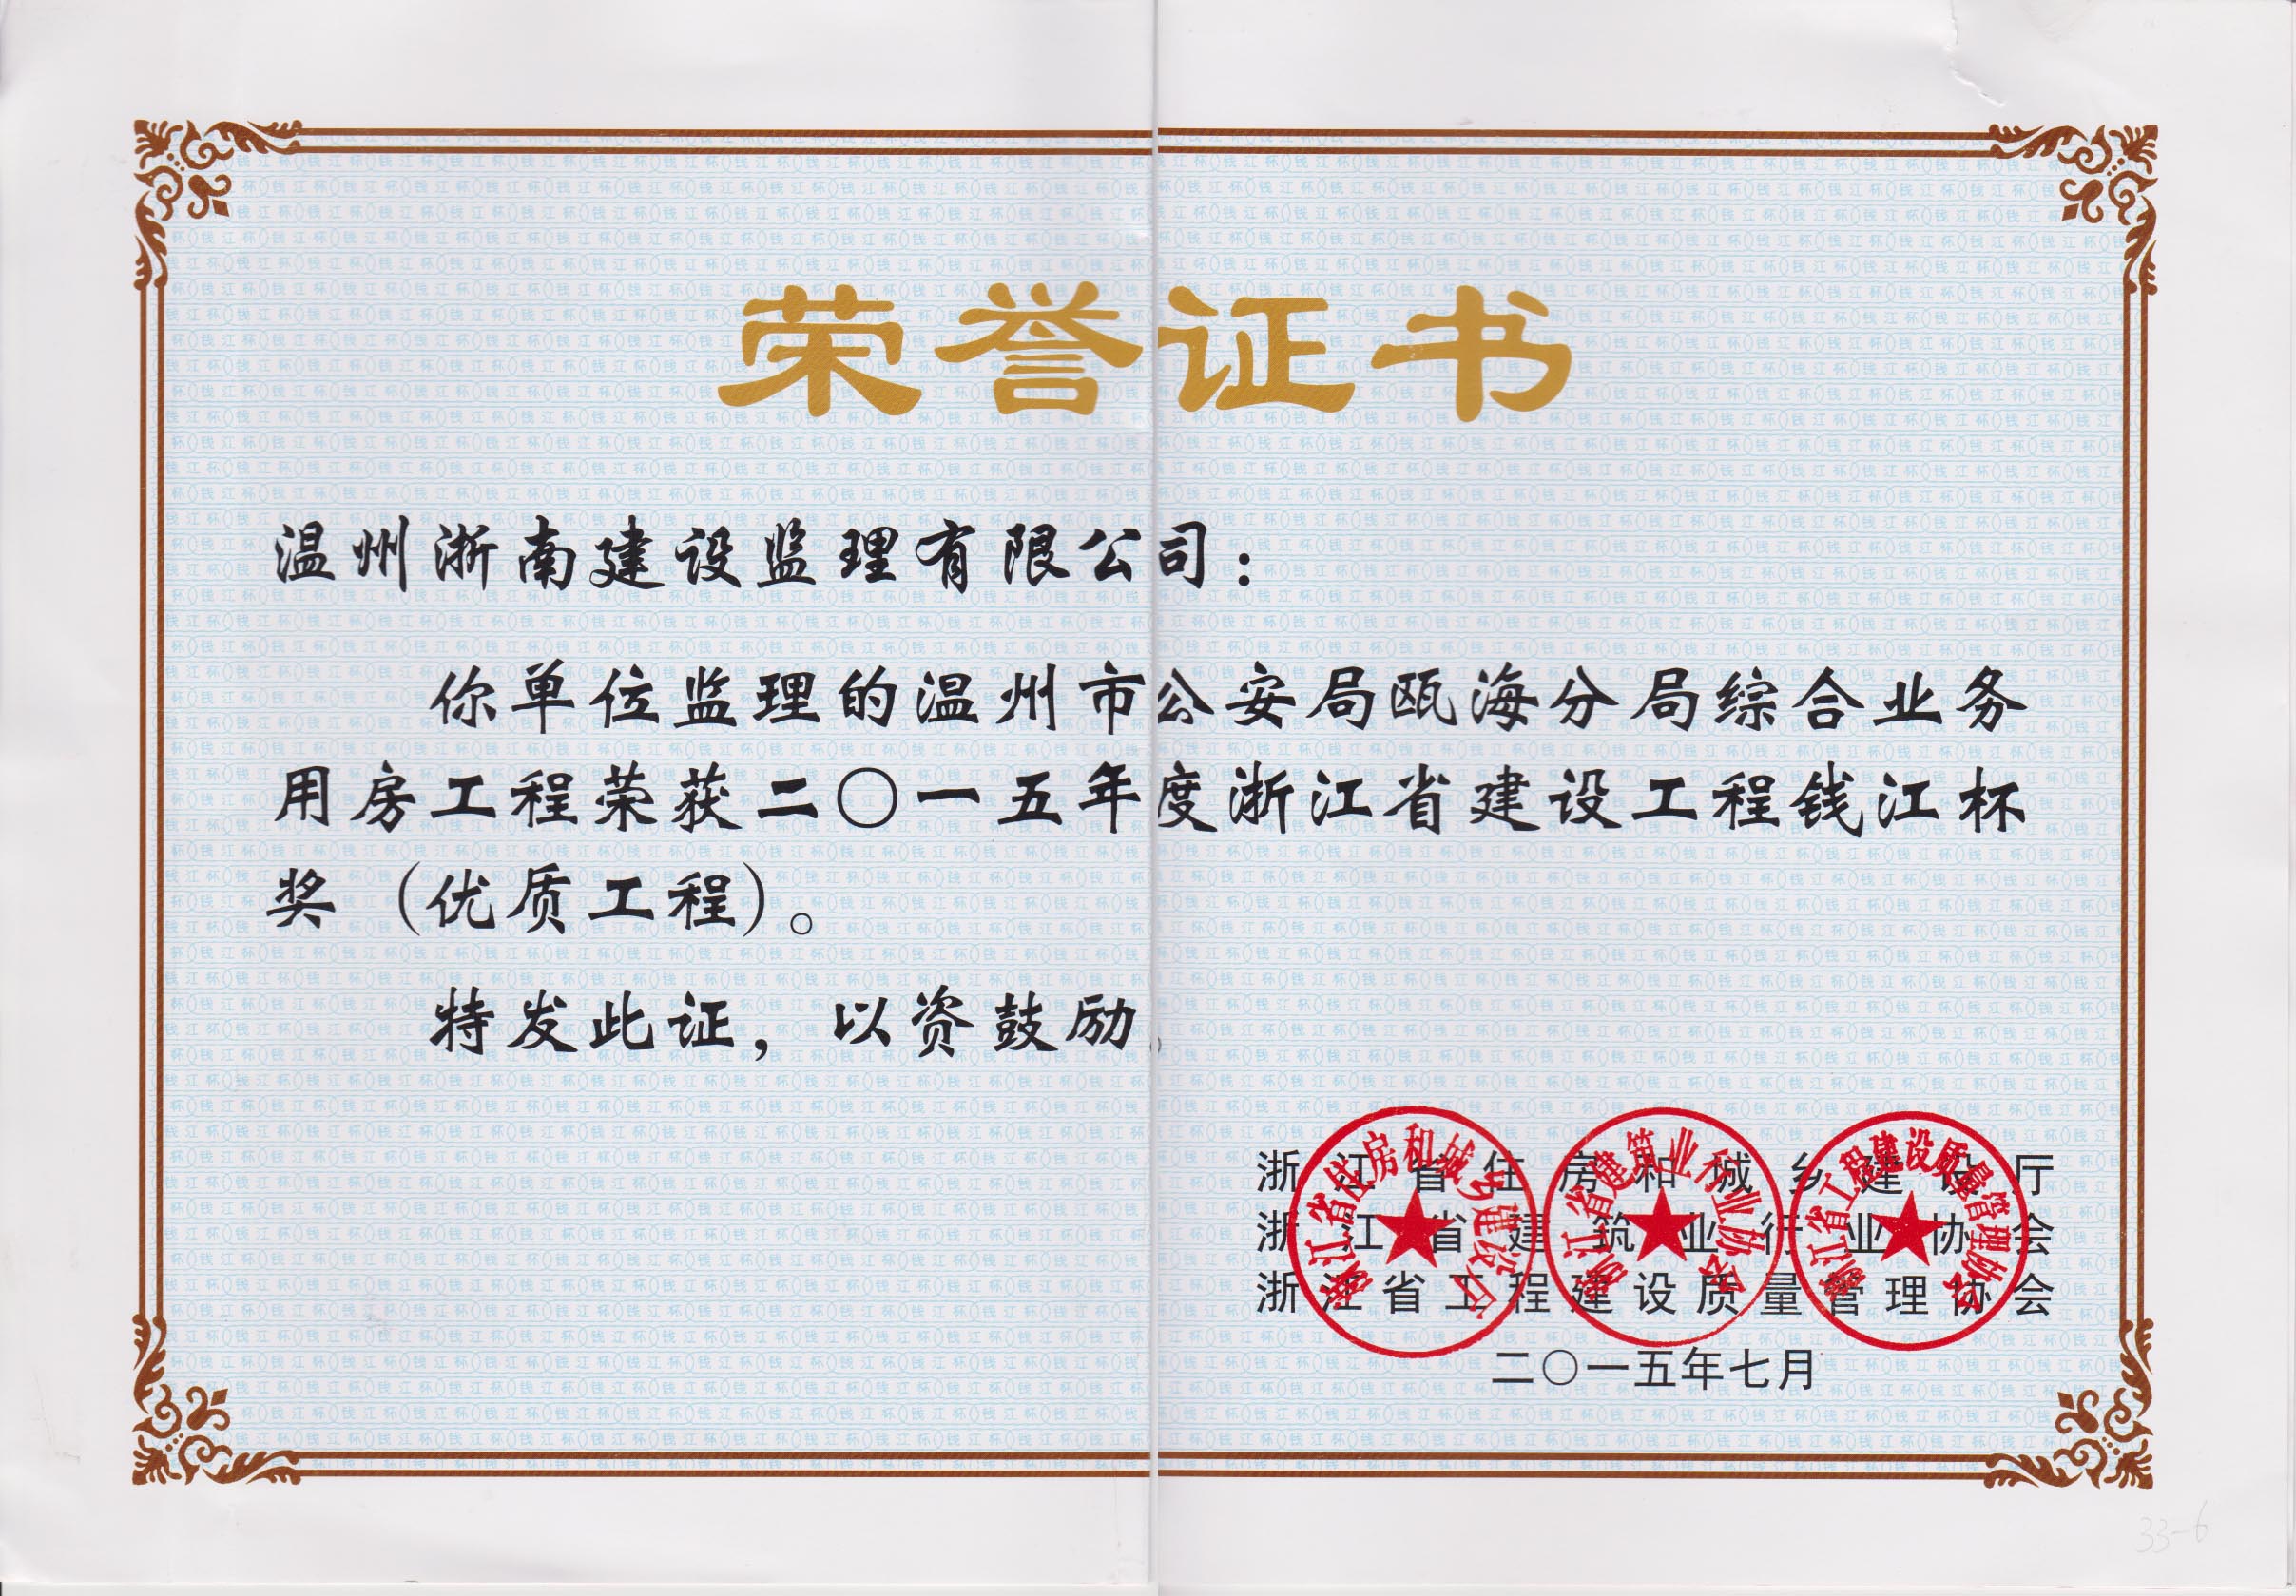 荣誉证书
温州浙南建设监理有限公司：
你单位监理的温州市公安局瓯海分局综合业务
用房工程荣获二〇一五年度浙江省建设工程钱江杯
奖（优质工程）。
特发此证，以资鼓励
浙江省住房和城乡建设厅
浙江省建筑业行业协会
浙江省工程建设质量管理协会
浙江省住房和城乡建设厅
浙江省建筑业行业协会
浙江省工程建设质量管理协会
二〇一五年七月
33-6